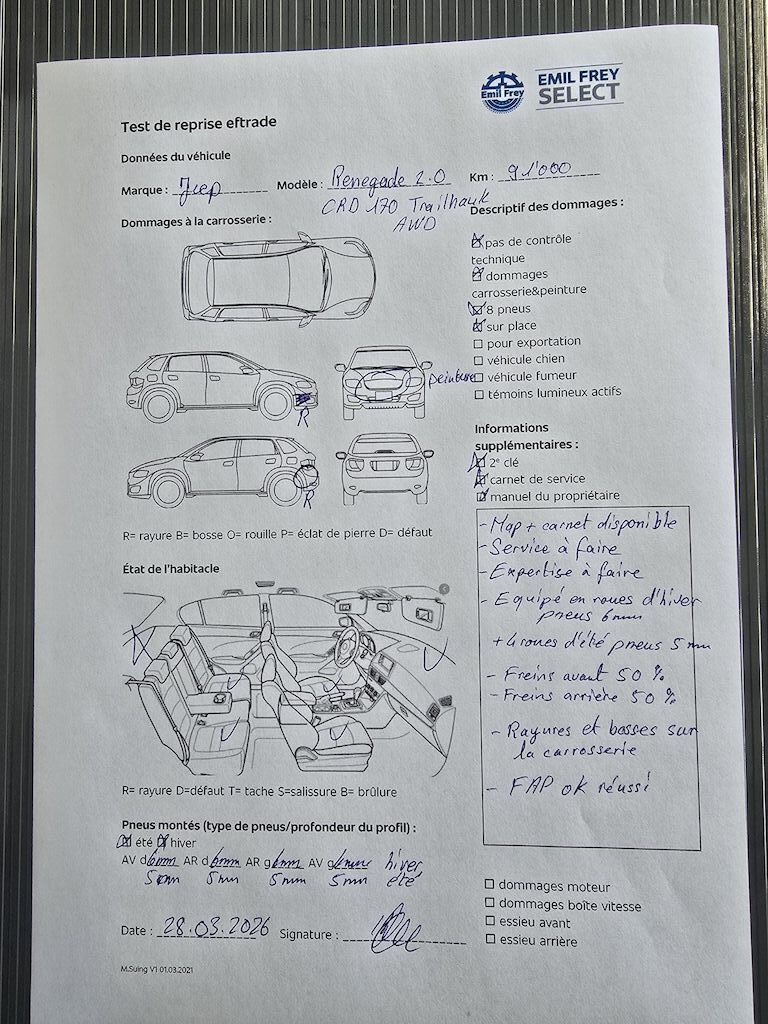 Emil Frey
EMIL FREY
SELECT
Test de reprise eftrade
Données du véhicule
Marque : Jeep Modèle : Renegade 2.0 Km : 91'000
CRD 170 Trailhawk
AWD
Dommages à la carrosserie :
peinture
R
R
R= rayure B= bosse O= rouille P= éclat de pierre D= défaut
État de l'habitacle
R= rayure D=défaut T= tache S=salissure B= brûlure
Pneus montés (type de pneus/profondeur du profil) :
été hiver
AV d 6mm AR d 6mm AR g 6mm AV g 6mm hiver
5mm 5mm 5mm 5mm été
Date : 28.03.2026 Signature :
M.Suing V1 01.03.2021
Descriptif des dommages :
pas de contrôle
technique
dommages
carrosserie&peinture
8 pneus
sur place
pour exportation
véhicule chien
véhicule fumeur
témoins lumineux actifs
Informations
supplémentaires :
2e clé
carnet de service
manuel du propriétaire
- Map + carnet disponible
- Service à faire
- Expertise à faire
- Equipé en roues d'hiver
pneus 6mm
+ 4 roues d'été pneus 5 mm
- Freins avant 50 %
- Freins arrière 50 %
- Rayures et bosses sur
la carrosserie
- FAP ok réussi
dommages moteur
dommages boîte vitesse
essieu avant
essieu arrière